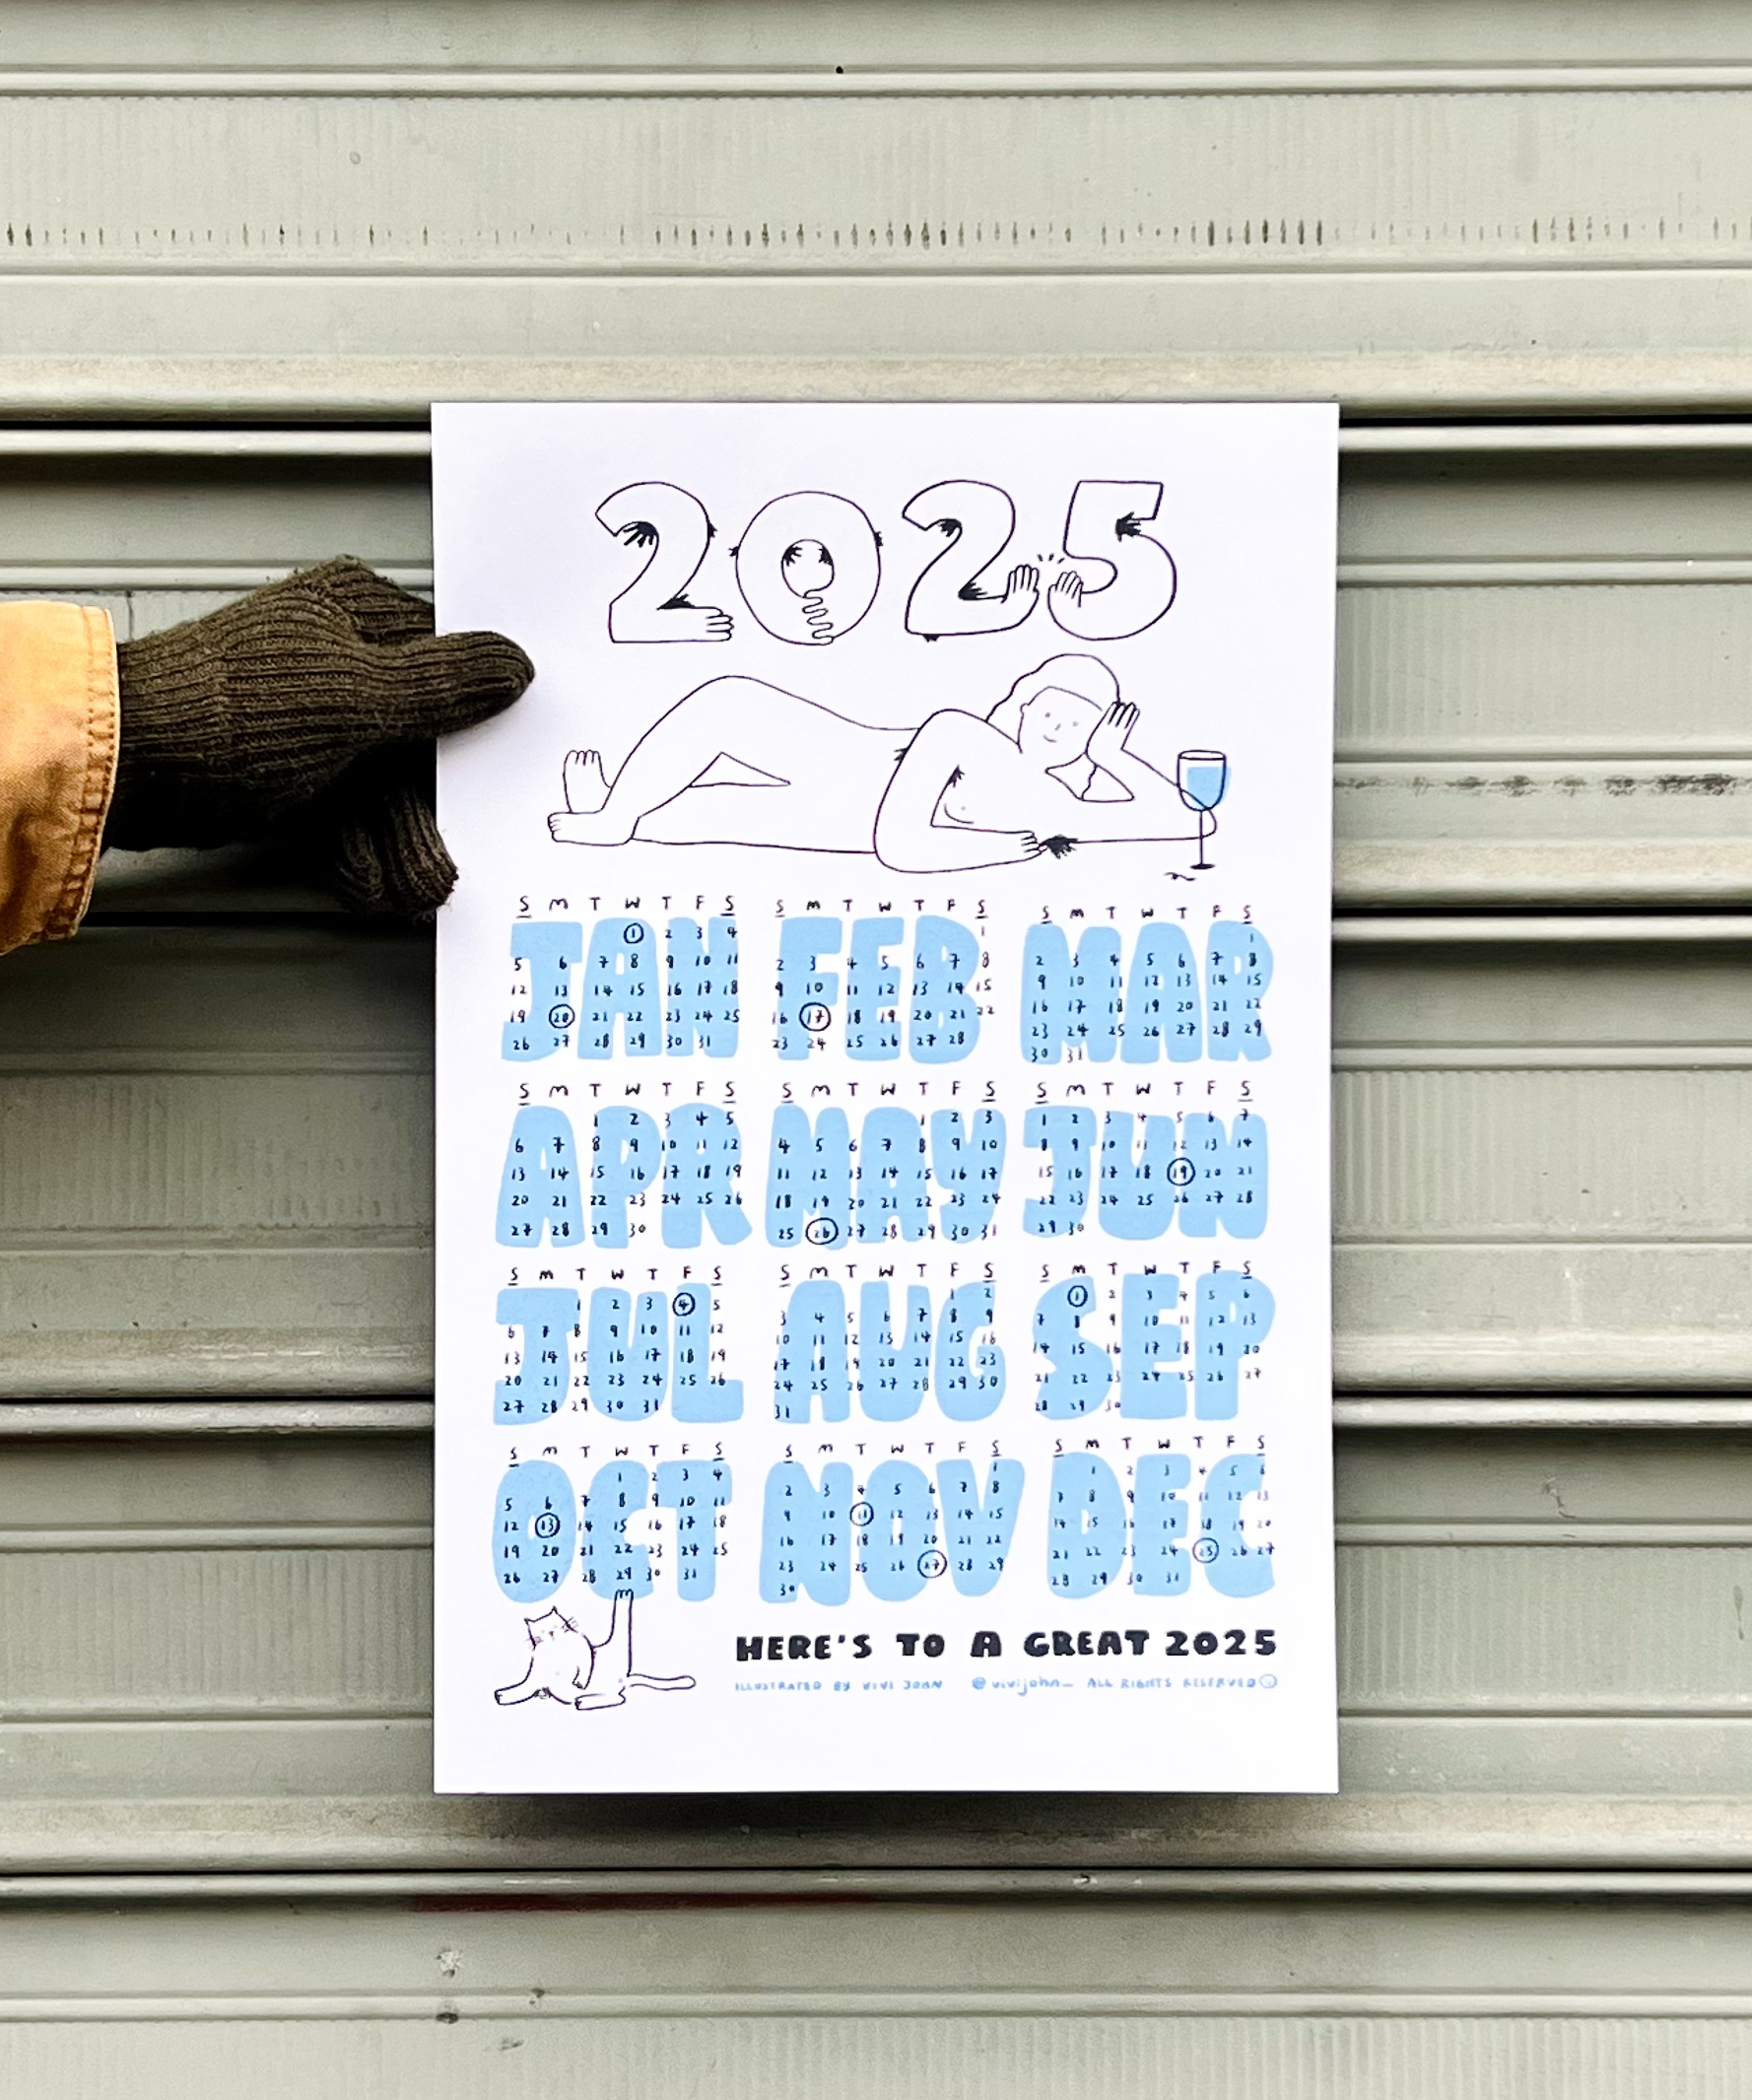 2025
S M T W T F S
JAN
1 2 3 4
5 6 7 8 9 10 11
12 13 14 15 16 17 18
19 20 21 22 23 24 25
26 27 28 29 30 31
S M T W T F S
FEB
1
2 3 4 5 6 7 8
9 10 11 12 13 14 15
16 17 18 19 20 21 22
23 24 25 26 27 28
S M T W T F S
MAR
1
2 3 4 5 6 7 8
9 10 11 12 13 14 15
16 17 18 19 20 21 22
23 24 25 26 27 28 29
30 31
S M T W T F S
APR
1 2 3 4 5
6 7 8 9 10 11 12
13 14 15 16 17 18 19
20 21 22 23 24 25 26
27 28 29 30
S M T W T F S
MAY
1 2 3
4 5 6 7 8 9 10
11 12 13 14 15 16 17
18 19 20 21 22 23 24
25 26 27 28 29 30 31
S M T W T F S
JUN
1 2 3 4 5 6 7
8 9 10 11 12 13 14
15 16 17 18 19 20 21
22 23 24 25 26 27 28
29 30
S M T W T F S
JUL
1 2 3 4 5
6 7 8 9 10 11 12
13 14 15 16 17 18 19
20 21 22 23 24 25 26
27 28 29 30 31
S M T W T F S
AUG
1 2
3 4 5 6 7 8 9
10 11 12 13 14 15 16
17 18 19 20 21 22 23
24 25 26 27 28 29 30
31
S M T W T F S
SEP
1 2 3 4 5 6
7 8 9 10 11 12 13
14 15 16 17 18 19 20
21 22 23 24 25 26 27
28 29 30
S M T W T F S
OCT
1 2 3 4
5 6 7 8 9 10 11
12 13 14 15 16 17 18
19 20 21 22 23 24 25
26 27 28 29 30 31
S M T W T F S
NOV
1
2 3 4 5 6 7 8
9 10 11 12 13 14 15
16 17 18 19 20 21 22
23 24 25 26 27 28 29
30
S M T W T F S
DEC
1 2 3 4 5 6
7 8 9 10 11 12 13
14 15 16 17 18 19 20
21 22 23 24 25 26 27
28 29 30 31
HERE'S TO A GREAT 2025
ILLUSTRATED BY VIVI JOHN @vivijohn_ ALL RIGHTS RESERVED ©